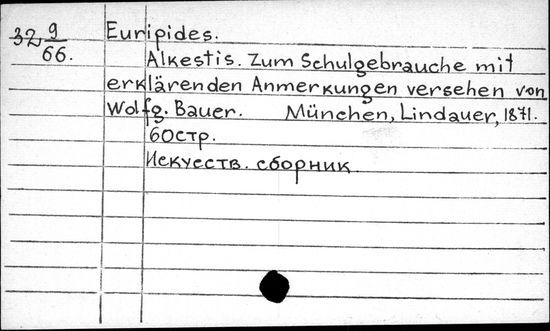 32 9/66.
Euripides.
Alkestis. Zum Schulgebrauche mit
erklärenden Anmerkungen versehen von
Wolfg. Bauer. München, Lindauer, 1871.
60стр.
Искусств. сборник.